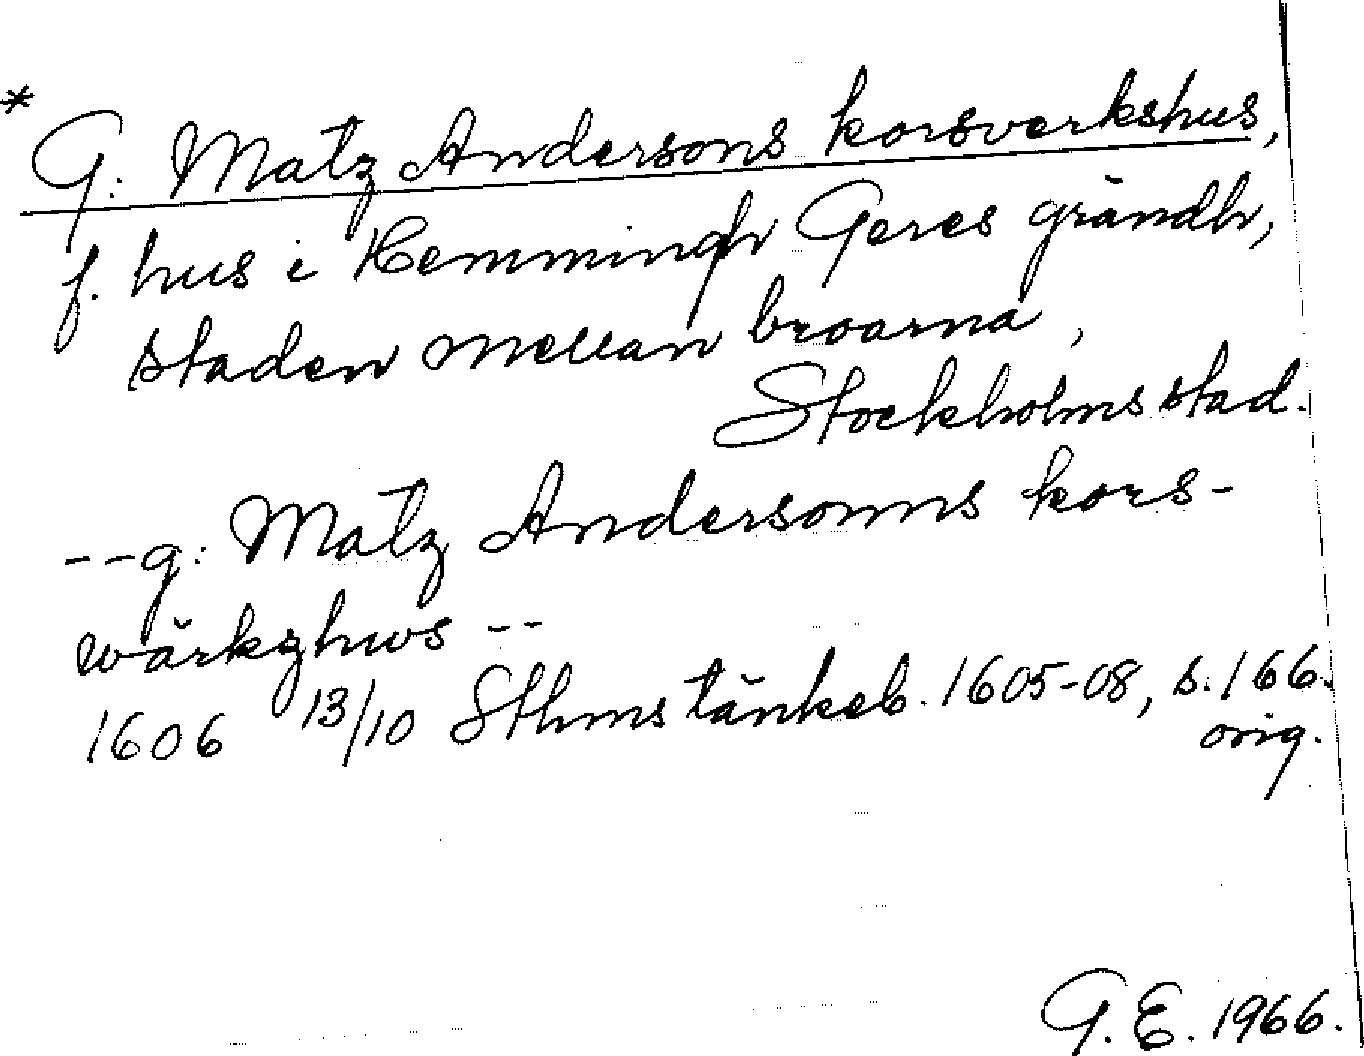 * G: Matz Andersons korsverkshus,
f. hus i Hemmingh Geres grändh,
staden mellan broarna,
Stockholms stad.
--g: Matz Andersonns kors-
wärkzhws --
1606 13/10 Sthms tänkeb. 1605-08, s. 166.
orig.
G.E. 1966.